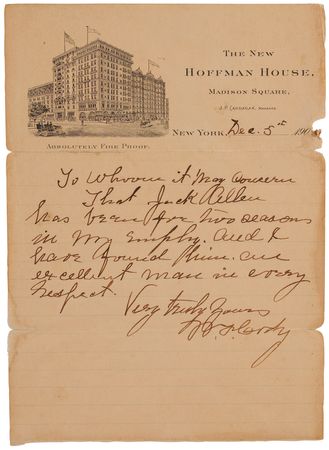 THE NEW
HOFFMAN HOUSE,
MADISON SQUARE,
J. P. CADDAGAN, MANAGER
NEW YORK, Dec. 5th 190
ABSOLUTELY FIRE PROOF.
To Whom it May Concern
That Jack Allen
has been for two seasons
in my Employ. And I
have found him an
excellent man in every
respect.
Very truly yours
W. F. Cody